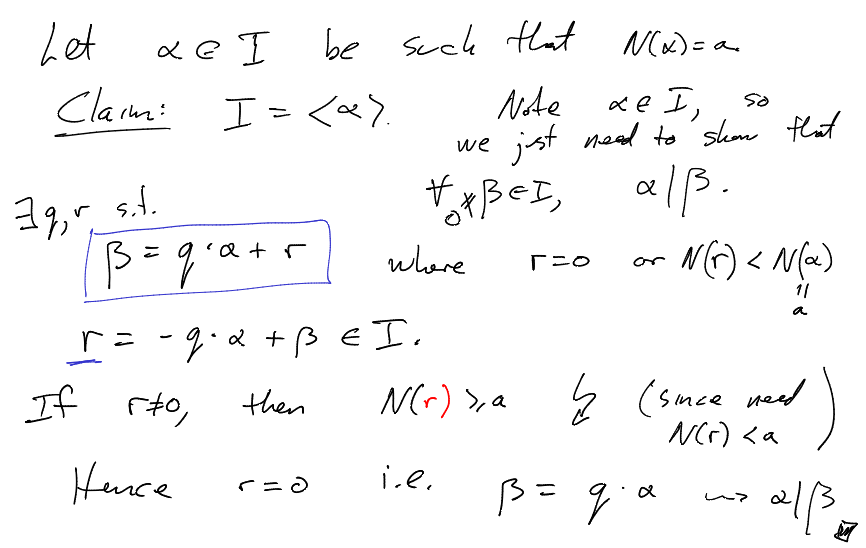 Let α ∈ I be such that N(α)=a.
Claim: I = <α>. Note α ∈ I, so
we just need to show that
∀ 0≠β∈I, α|β.
∃q,r s.t.
β = q·α + r where r=0 or N(r) < N(α)
=
a
r = -q·α + β ∈ I.
If r≠0, then N(r) ≥ a ↯ (since need
N(r) < a)
Hence r=0 i.e. β = q·α ⇝ α|β